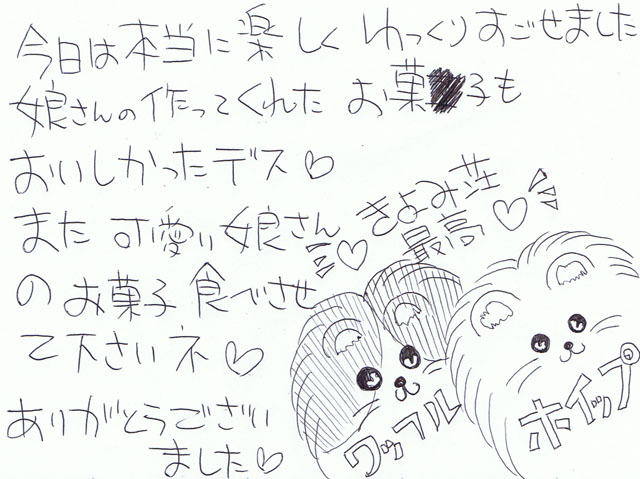 今日は本当に楽しくゆっくりすごせました
娘さんの作ってくれたお菓子も
おいしかったデス♡
また可愛い娘さん
のお菓子食べさせ
て下さいネ♡
ありがとうござい
ました♡
きよみ荘
最高♡
ワッフル
ホイップ